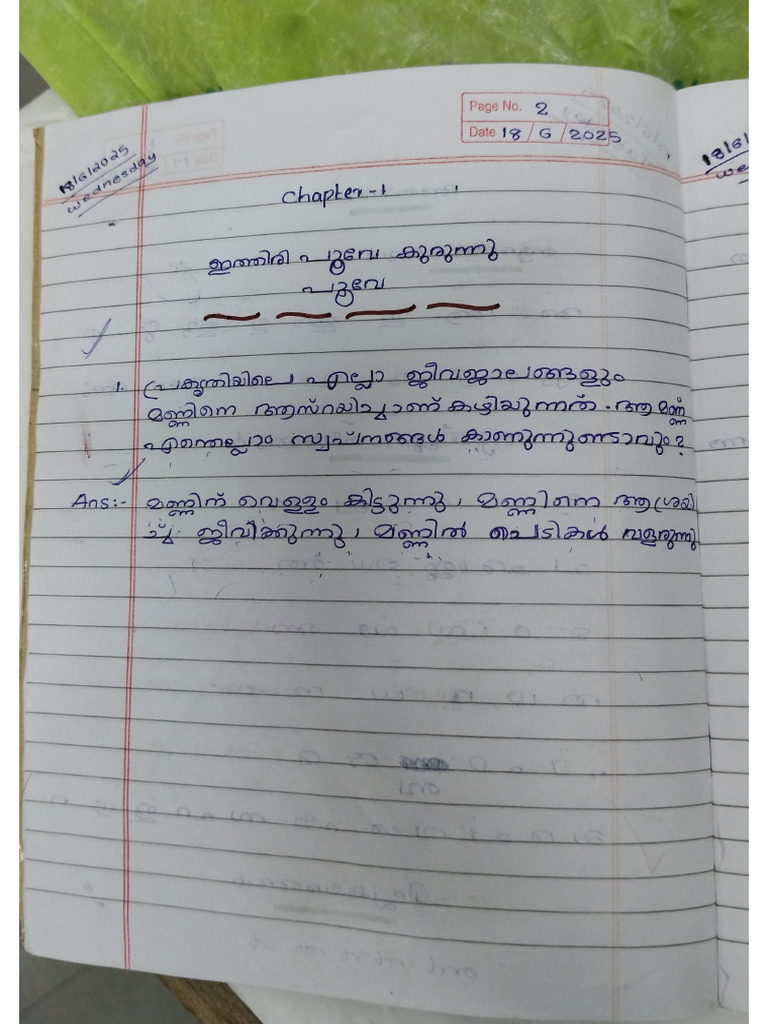 Page No. 2
Date 18/6/2025
18/6/2025
wednesday
Chapter-1
ഇത്തിരി പൂവേ കുരുന്നു
പൂവേ
1. പ്രകൃതിയിലെ എല്ലാ ജീവജാലങ്ങളും
മണ്ണിനെ ആസ്രയിച്ചാണ് കഴിയുന്നത്. ആ മണ്ണ്
എന്തെല്ലാം സ്വപ്നങ്ങൾ കാണുന്നുണ്ടാവും?
Ans:- മണ്ണിന് വെള്ളം കിട്ടുന്നു, മണ്ണിനെ ആശ്രയി
ച്ച് ജീവിക്കുന്നു, മണ്ണിൽ ചെടികൾ വളരുന്നു
18/6/
we